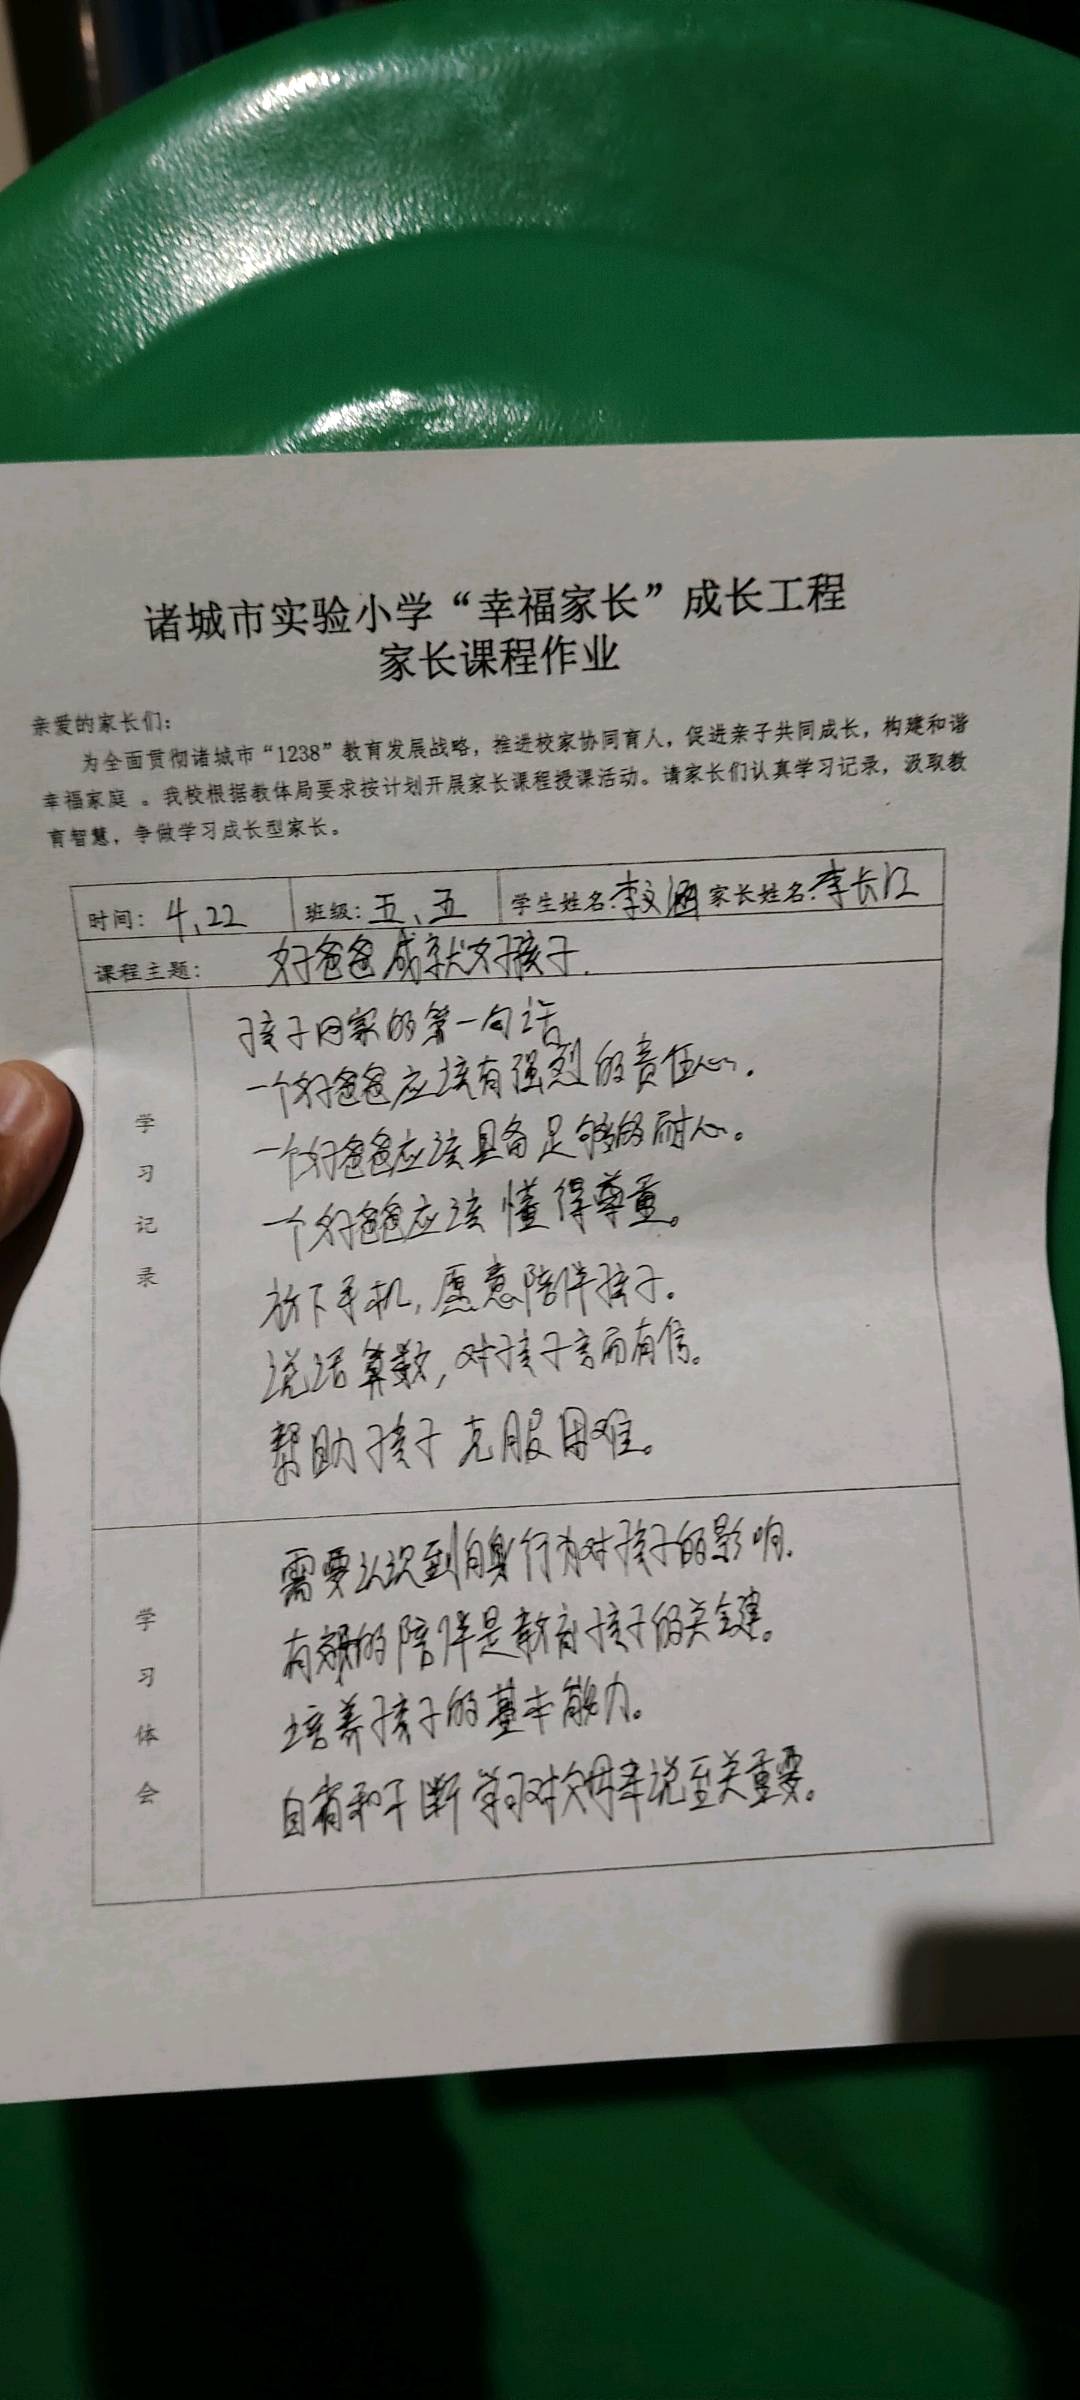 诸城市实验小学“幸福家长”成长工程
家长课程作业
亲爱的家长们：
为全面贯彻诸城市“1238”教育发展战略，推进校家协同育人，促进亲子共同成长，构建和谐
幸福家庭 。我校根据教体局要求按计划开展家长课程授课活动。请家长们认真学习记录，汲取教
育智慧，争做学习成长型家长。
时间：4、22 班级：五、五 学生姓名：李文涵 家长姓名：李长江
课程主题： 好爸爸成就好孩子.
学习记录
孩子回家的第一句话
一个好爸爸应该有强烈的责任心.
一个好爸爸应该具备足够的耐心。
一个好爸爸应该懂得尊重。
放下手机，愿意陪伴孩子.
说话算数，对孩子言而有信。
帮助孩子克服困难。
学习体会
需要认识到自身行为对孩子的影响.
有效的陪伴是教育孩子的关键。
培养孩子的基本能力。
自省和不断学习对父母来说至关重要。